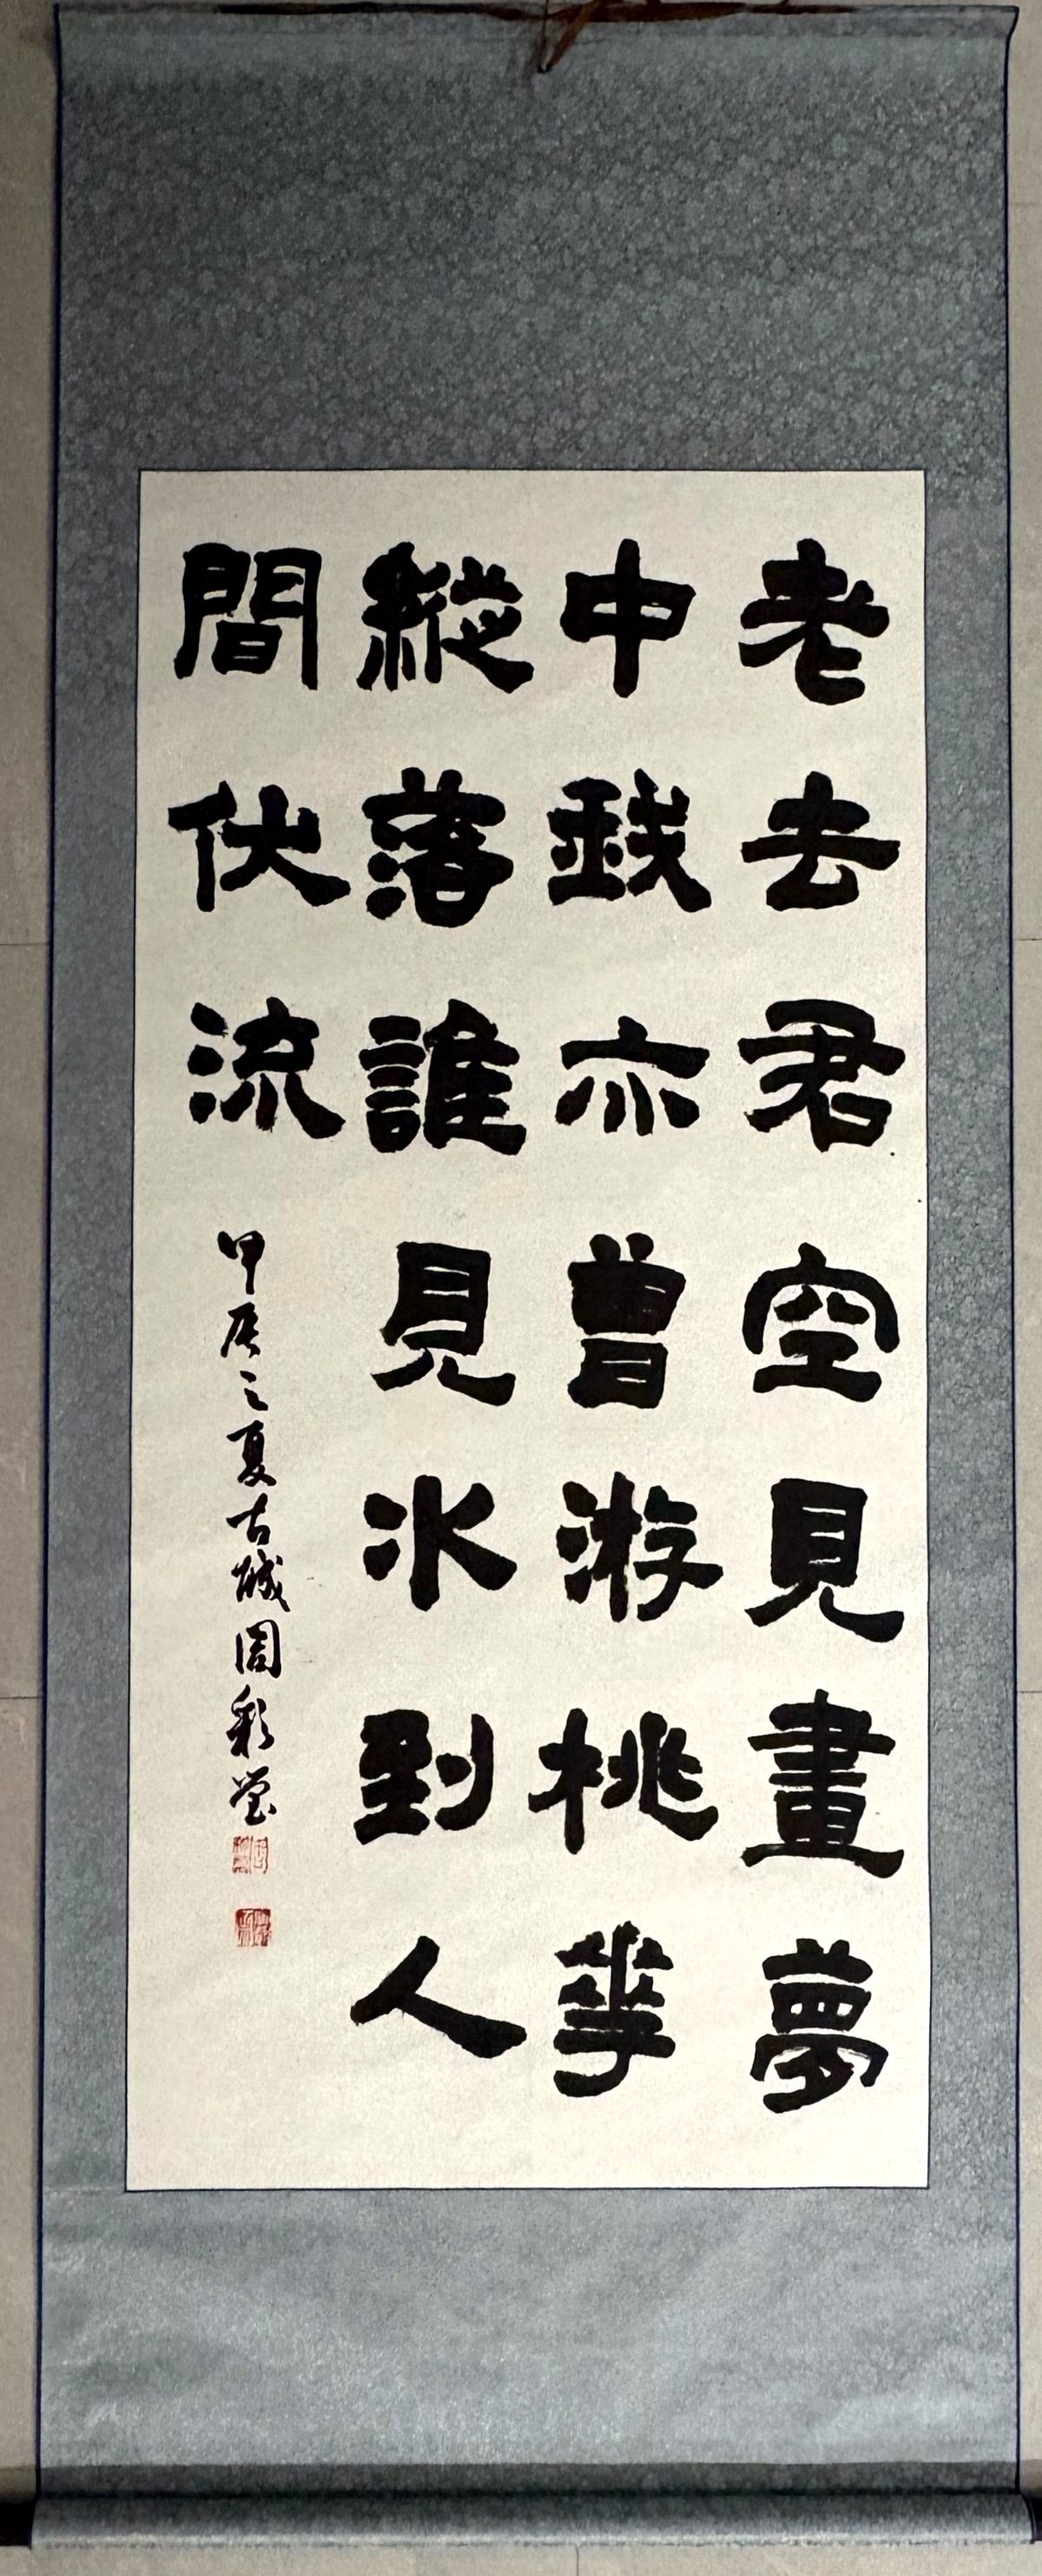 老去君空見畫夢
中我亦曾游桃華
縱落誰見水到人
間伏流
甲辰之夏古城周彩